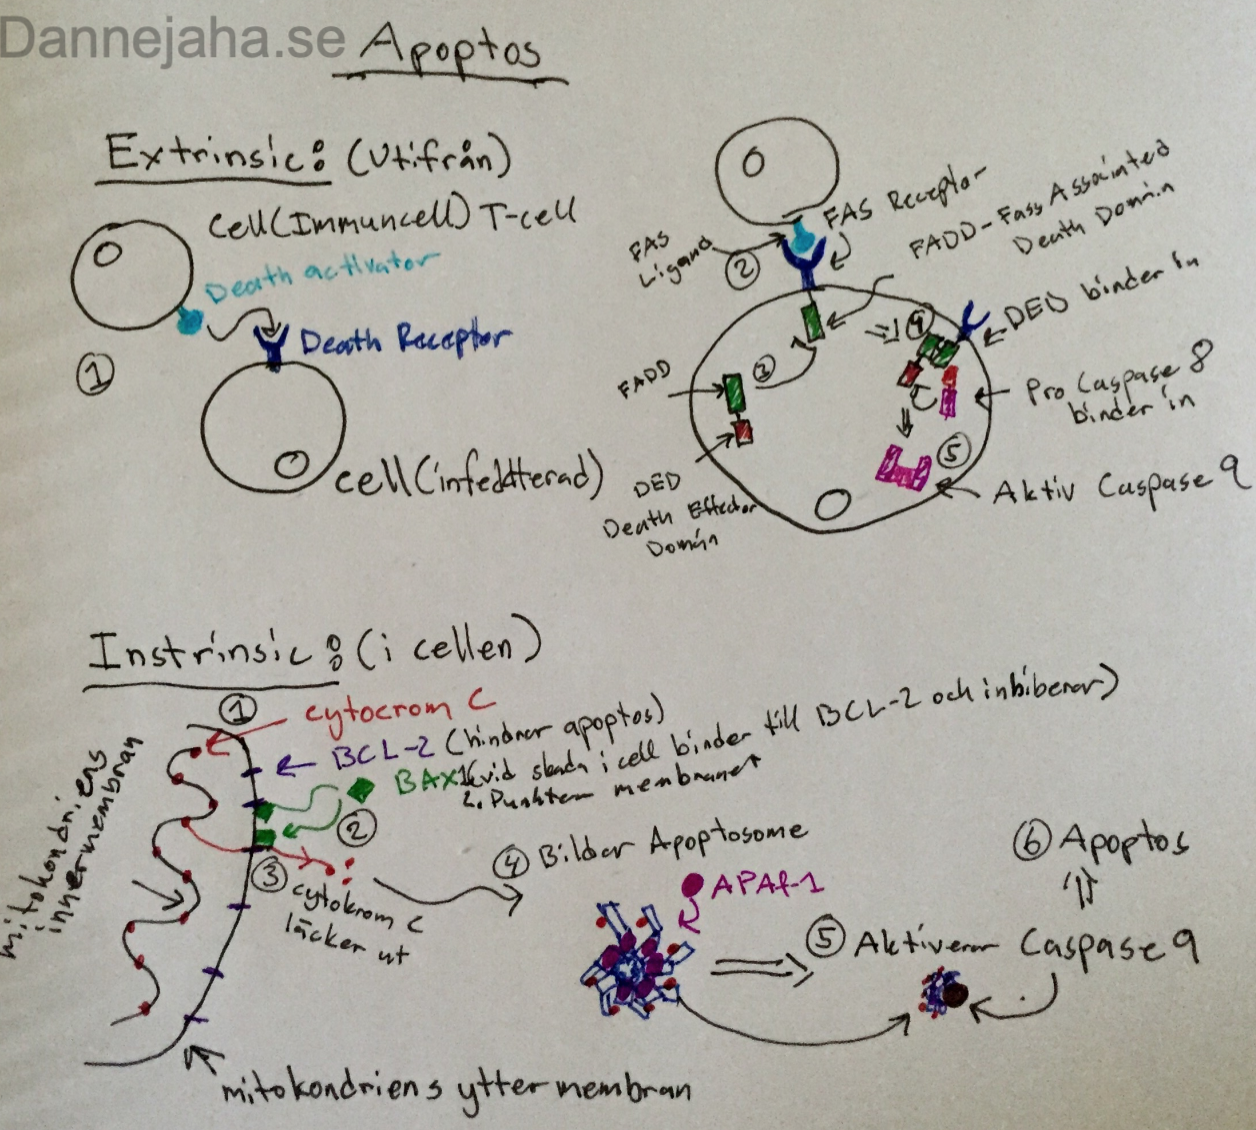 Dannejaha.se
Apoptos
Extrinsic: (Utifrån)
Cell(Immuncell) T-cell
Death activator
Death Receptor
1
cell(infekterad)
FAS Receptor
FAS
Ligand
2
FADD-Fass Associated
Death Domän
FADD
3
DED
Death Effector
Domän
4
DED binder in
Pro Caspase 8
binder in
5
Aktiv Caspase 9
Instrinsic: (i cellen)
1
cytocrom C
BCL-2 (hindrar apoptos)
BAX 1(vid skada i cell binder till BCL-2 och inhiberar)
2. Punkterar membranet
2
mitokondriens
innermembran
3
cytokrom C
läcker ut
4 Bildar Apoptosome
APAf-1
5 Aktiverar Caspase 9
6 Apoptos
mitokondriens yttermembran